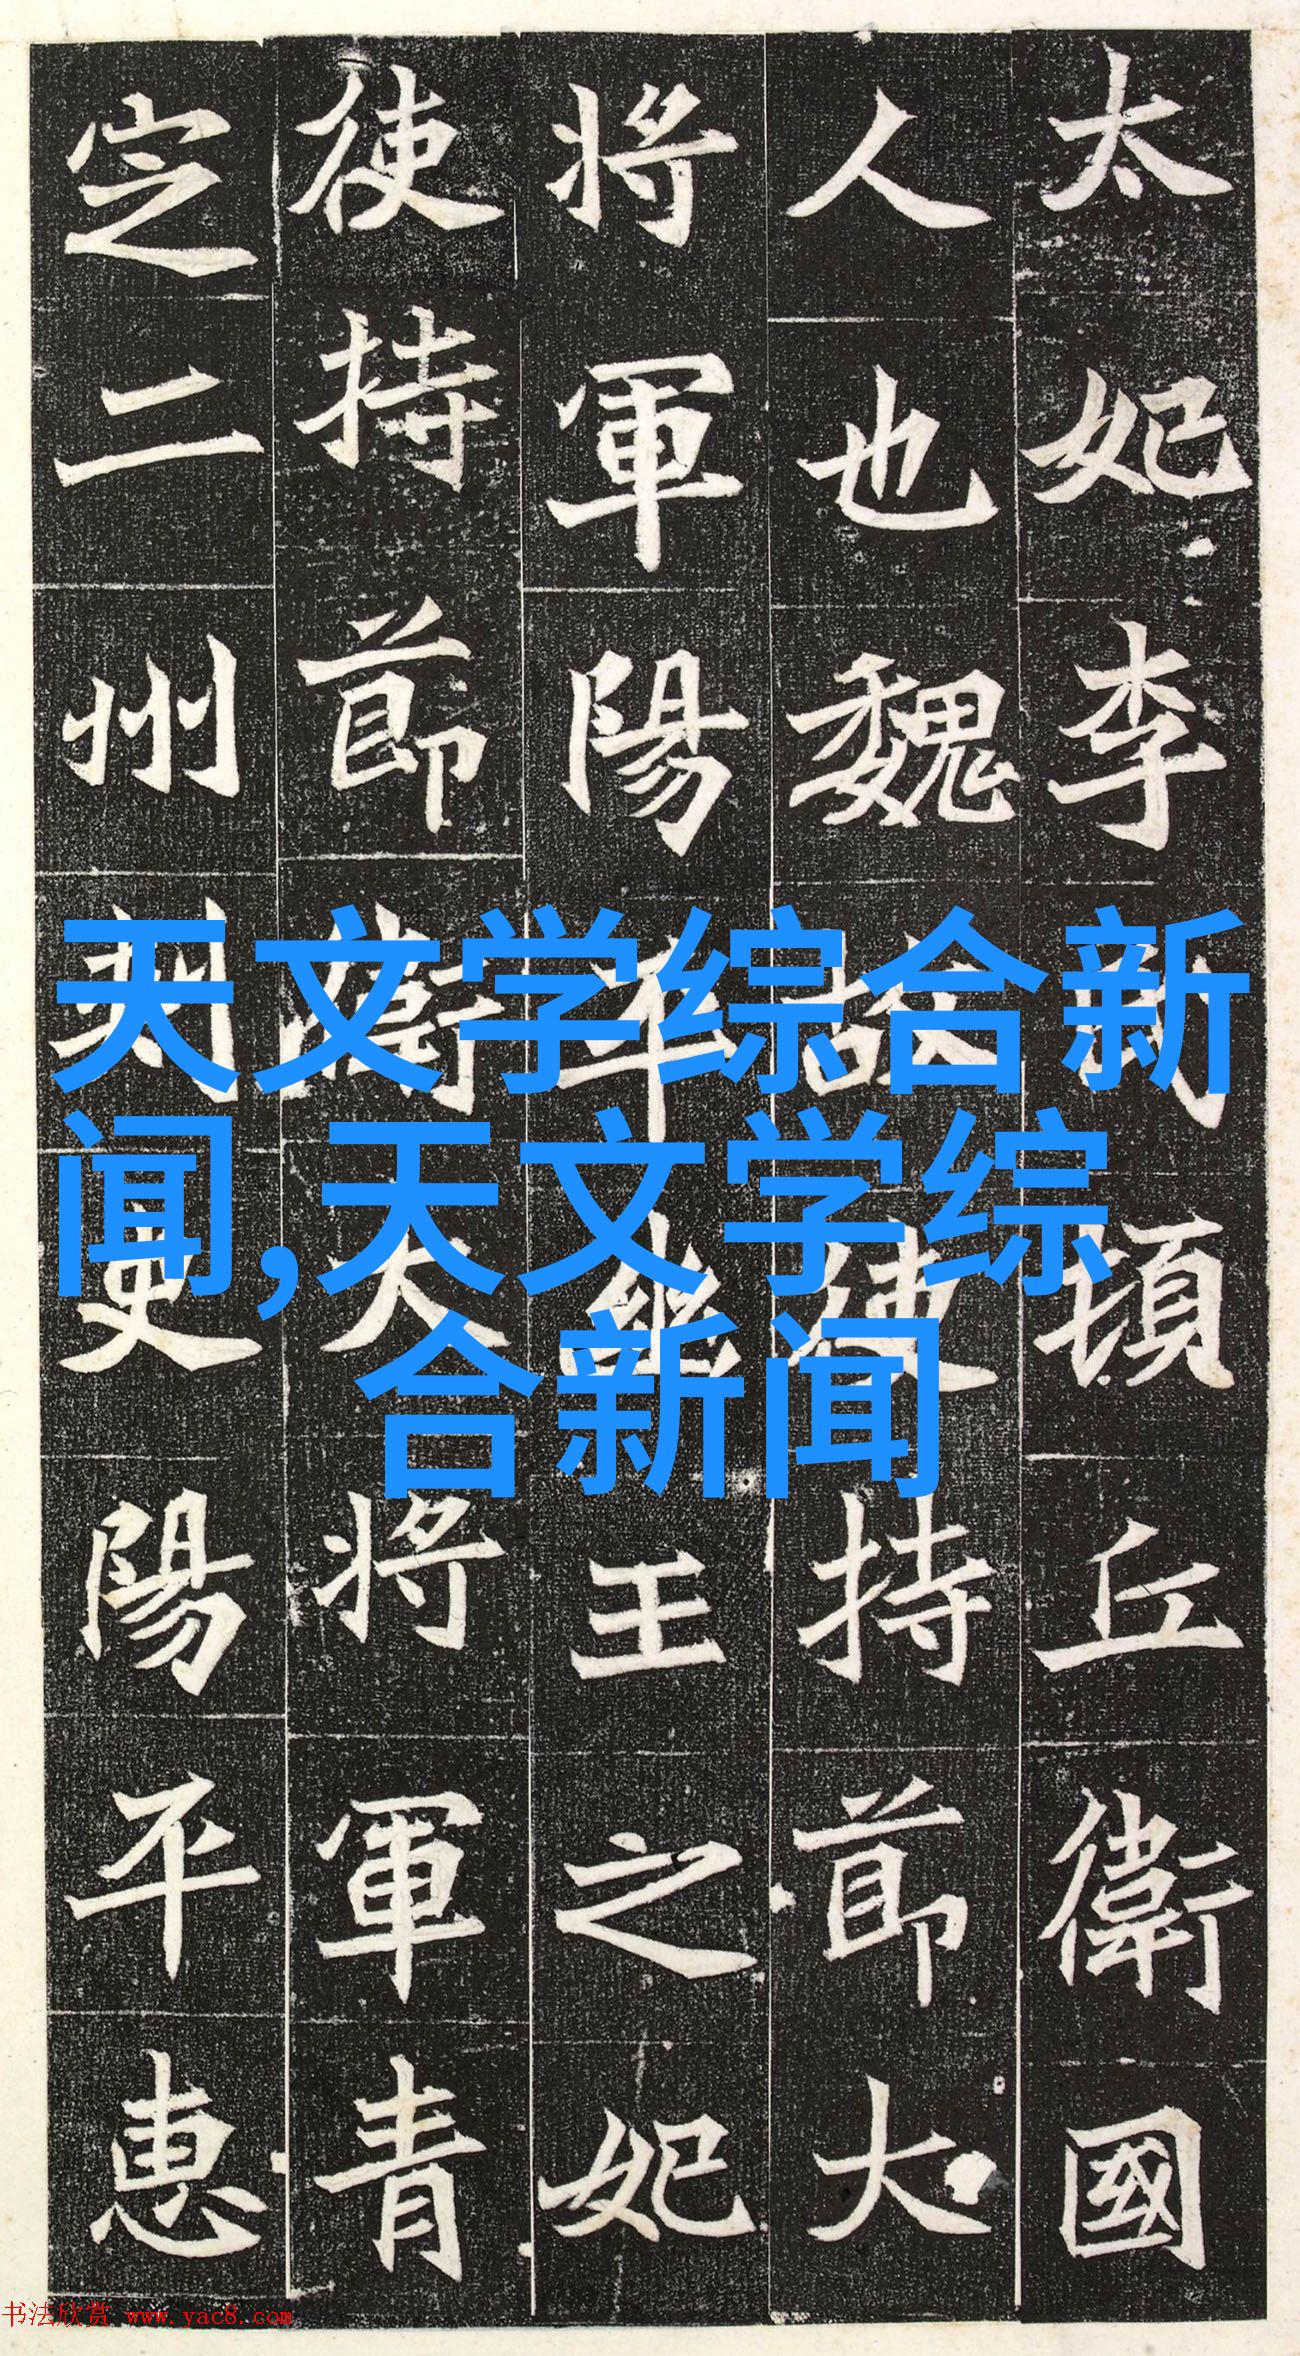 太妃李氏頓丘衛國
人也魏故使持節大
將軍陽平幽王之妃
使持節衛大將軍青
定二州刺史陽平惠
天文学综合新
闻,天文学综
合新闻
书法欣赏 www.yac8.com